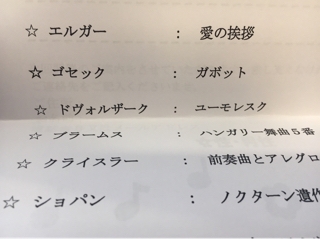 ☆ エルガー : 愛の挨拶
☆ ゴセック : ガボット
☆ ドヴォルザーク : ユーモレスク
☆ ブラームス : ハンガリー舞曲5番
☆ クライスラー : 前奏曲とアレグロ
☆ ショパン : ノクターン遺作